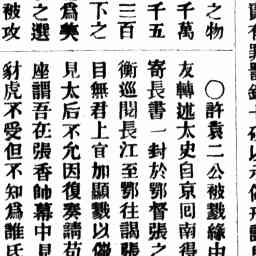 之物
千萬
千五
三百
下之
爲奬
之選
被攻
〇許袁二公被戮緣由
友轉述太史自京囘南得
寄長書一封於鄂督張之
衡巡閱長江至鄂往謁張
目無君上宜加顯戮以儆
見太后不允因復奏請苟
座謂吾在張香帥幕中見
豺虎不受但不知爲誰氏